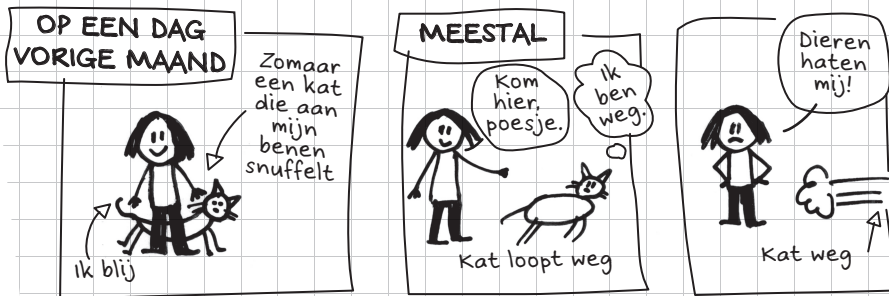 OP EEN DAG
VORIGE MAAND
Zomaar
een kat
die aan
mijn
benen
snuffelt
Ik blij
MEESTAL
Kom
hier,
poesje.
Ik
ben
weg.
Kat loopt weg
Dieren
haten
mij!
Kat weg